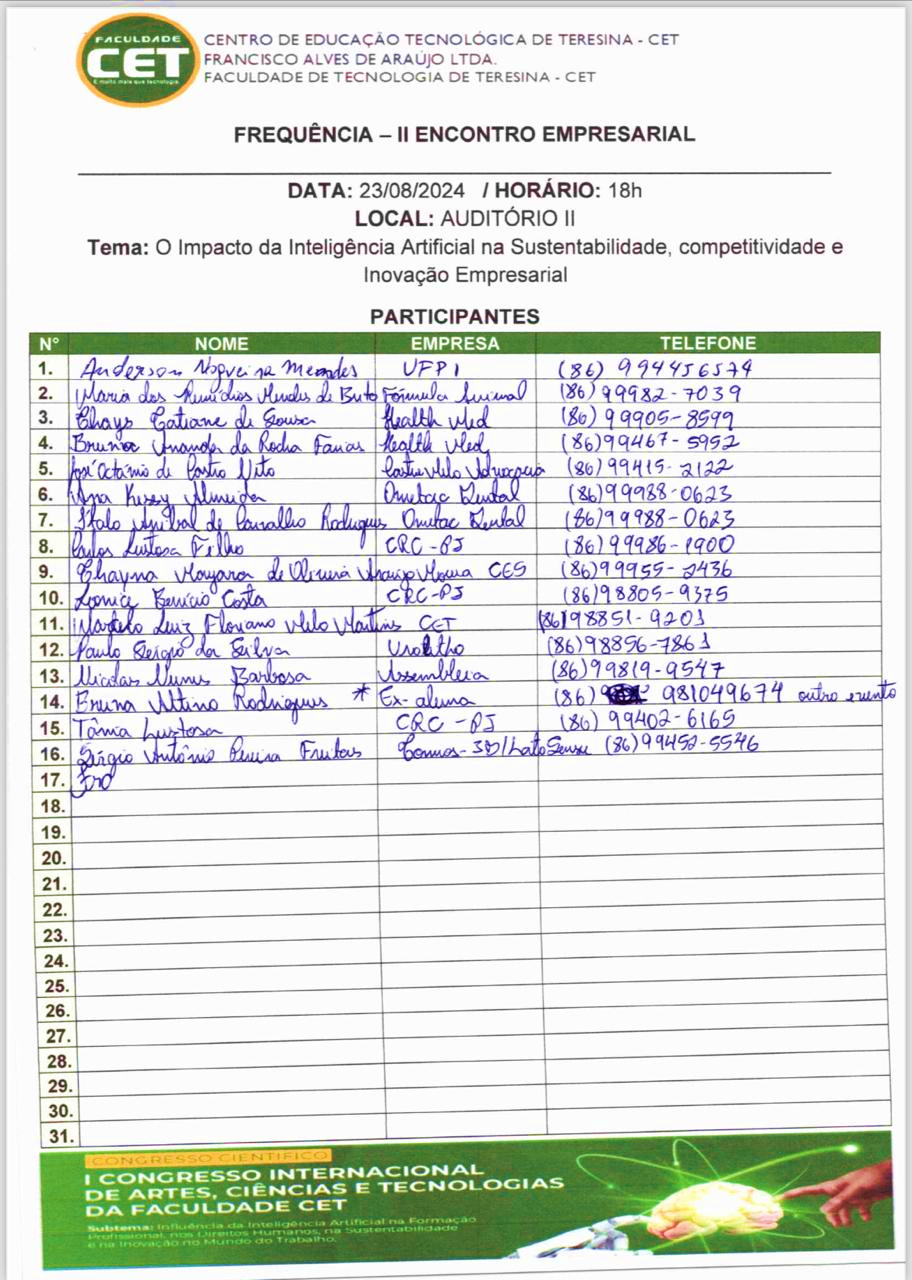 FACULDADE
CET
É muito mais que tecnologia.
CENTRO DE EDUCAÇÃO TECNOLÓGICA DE TERESINA - CET
FRANCISCO ALVES DE ARAÚJO LTDA.
FACULDADE DE TECNOLOGIA DE TERESINA - CET
FREQUÊNCIA – II ENCONTRO EMPRESARIAL
DATA: 23/08/2024 / HORÁRIO: 18h
LOCAL: AUDITÓRIO II
Tema: O Impacto da Inteligência Artificial na Sustentabilidade, competitividade e
Inovação Empresarial
PARTICIPANTES
N° NOME EMPRESA TELEFONE
1. Anderson Nogueira Mendes UFPI (86) 994456574
2. Maria dos Remédios Mendes de Brito Fórmula Animal (86) 99982-7039
3. Thays Tatiane de Sousa Health Med (86) 99905-8599
4. Brunna Ananda da Rocha Farias Health Med (86) 99467-5952
5. José Octávio de Castro Melo Castro Melo Advocacia (86) 99415-2122
6. Ana Kessy Almeida Dental (86) 99988-0623
7. Ítalo Anibal de Carvalho Rodrigues Dental (86) 99988-0623
8. Carlos Lustosa Filho CRC-PI (86) 99986-1900
9. Thayna Mayara de Oliveira Araujo Moura CES (86) 99955-2436
10. Leonice Benício Costa CRC-PI (86) 98805-9375
11. Marcelo Luiz Floriano Melo Martins CET (86) 98851-9201
12. Paulo Sergio da Silva Urolitho (86) 98856-7861
13. Nicolas Nunes Barbosa Assembleia (86) 99819-9547
14. Bruna Altino Rodrigues * Ex-aluna (86) 981049674 outro evento
15. Tânia Lustosa CRC-PI (86) 99402-6165
16. Sérgio Antônio Pereira Freitas -3D/Lato Sensu (86) 99452-5546
17.
18.
19.
20.
21.
22.
23.
24.
25.
26.
27.
28.
29.
30.
31.
CONGRESSO CIENTÍFICO
I CONGRESSO INTERNACIONAL
DE ARTES, CIÊNCIAS E TECNOLOGIAS
DA FACULDADE CET
Subtema: Influência da Inteligência Artificial na Formação
Profissional, nos Direitos Humanos, na Sustentabilidade
e na Inovação no Mundo do Trabalho.